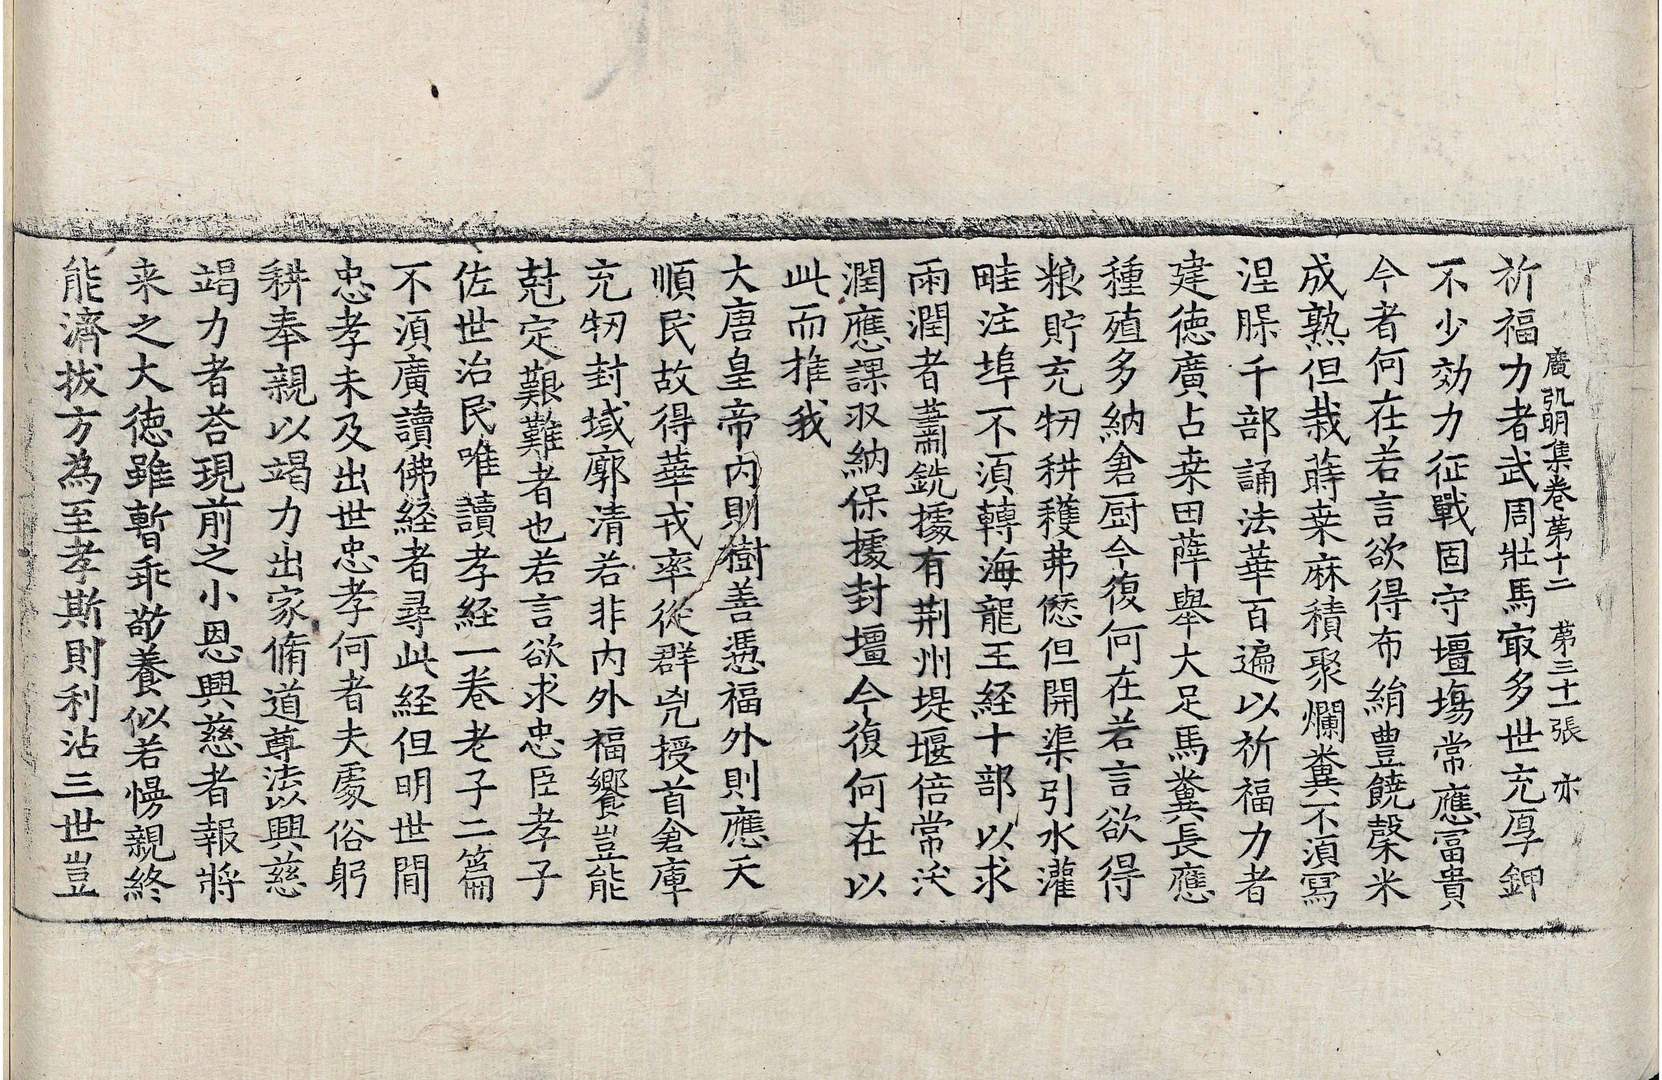 廣弘明集卷第十二　第三十一張　亦
祈福力者武周壯馬冣多世充厚鉀
不少効力征戰固守壃塲常應冨貴
今者何在若言欲得布絹豊饒槃米
成熟但栽蒔桒麻積聚爛糞不湏寫
涅𦝫千部誦法華百遍以祈福力者
建徳廣占桒田薛舉大足馬糞長應
種殖多納倉厨今復何在若言欲得
粮貯充牣耕穫弗愆但開渠引水灌
畦注埠不湏轉海龍王経十部以求
雨潤者蕭銑據有荆州堤堰倍常沃
潤應課収納保據封壇今復何在以
此而推我
大唐皇帝内則樹善憑福外則應天
順民故得華戎率從群兇授首倉庫
充牣封域廓清若非内外福饗豈能
尅定艱難者也若言欲求忠臣孝子
佐世治民唯讀孝経一卷老子二篇
不湏廣讀佛経者尋此経但明世間
忠孝未及出世忠孝何者夫處俗躬
耕奉親以竭力出家脩道尊法以興慈
竭力者荅現前之小恩興慈者報將
来之大徳雖暫乖敬養似若慢親終
能濟拔方為至孝斯則利沾三世豈